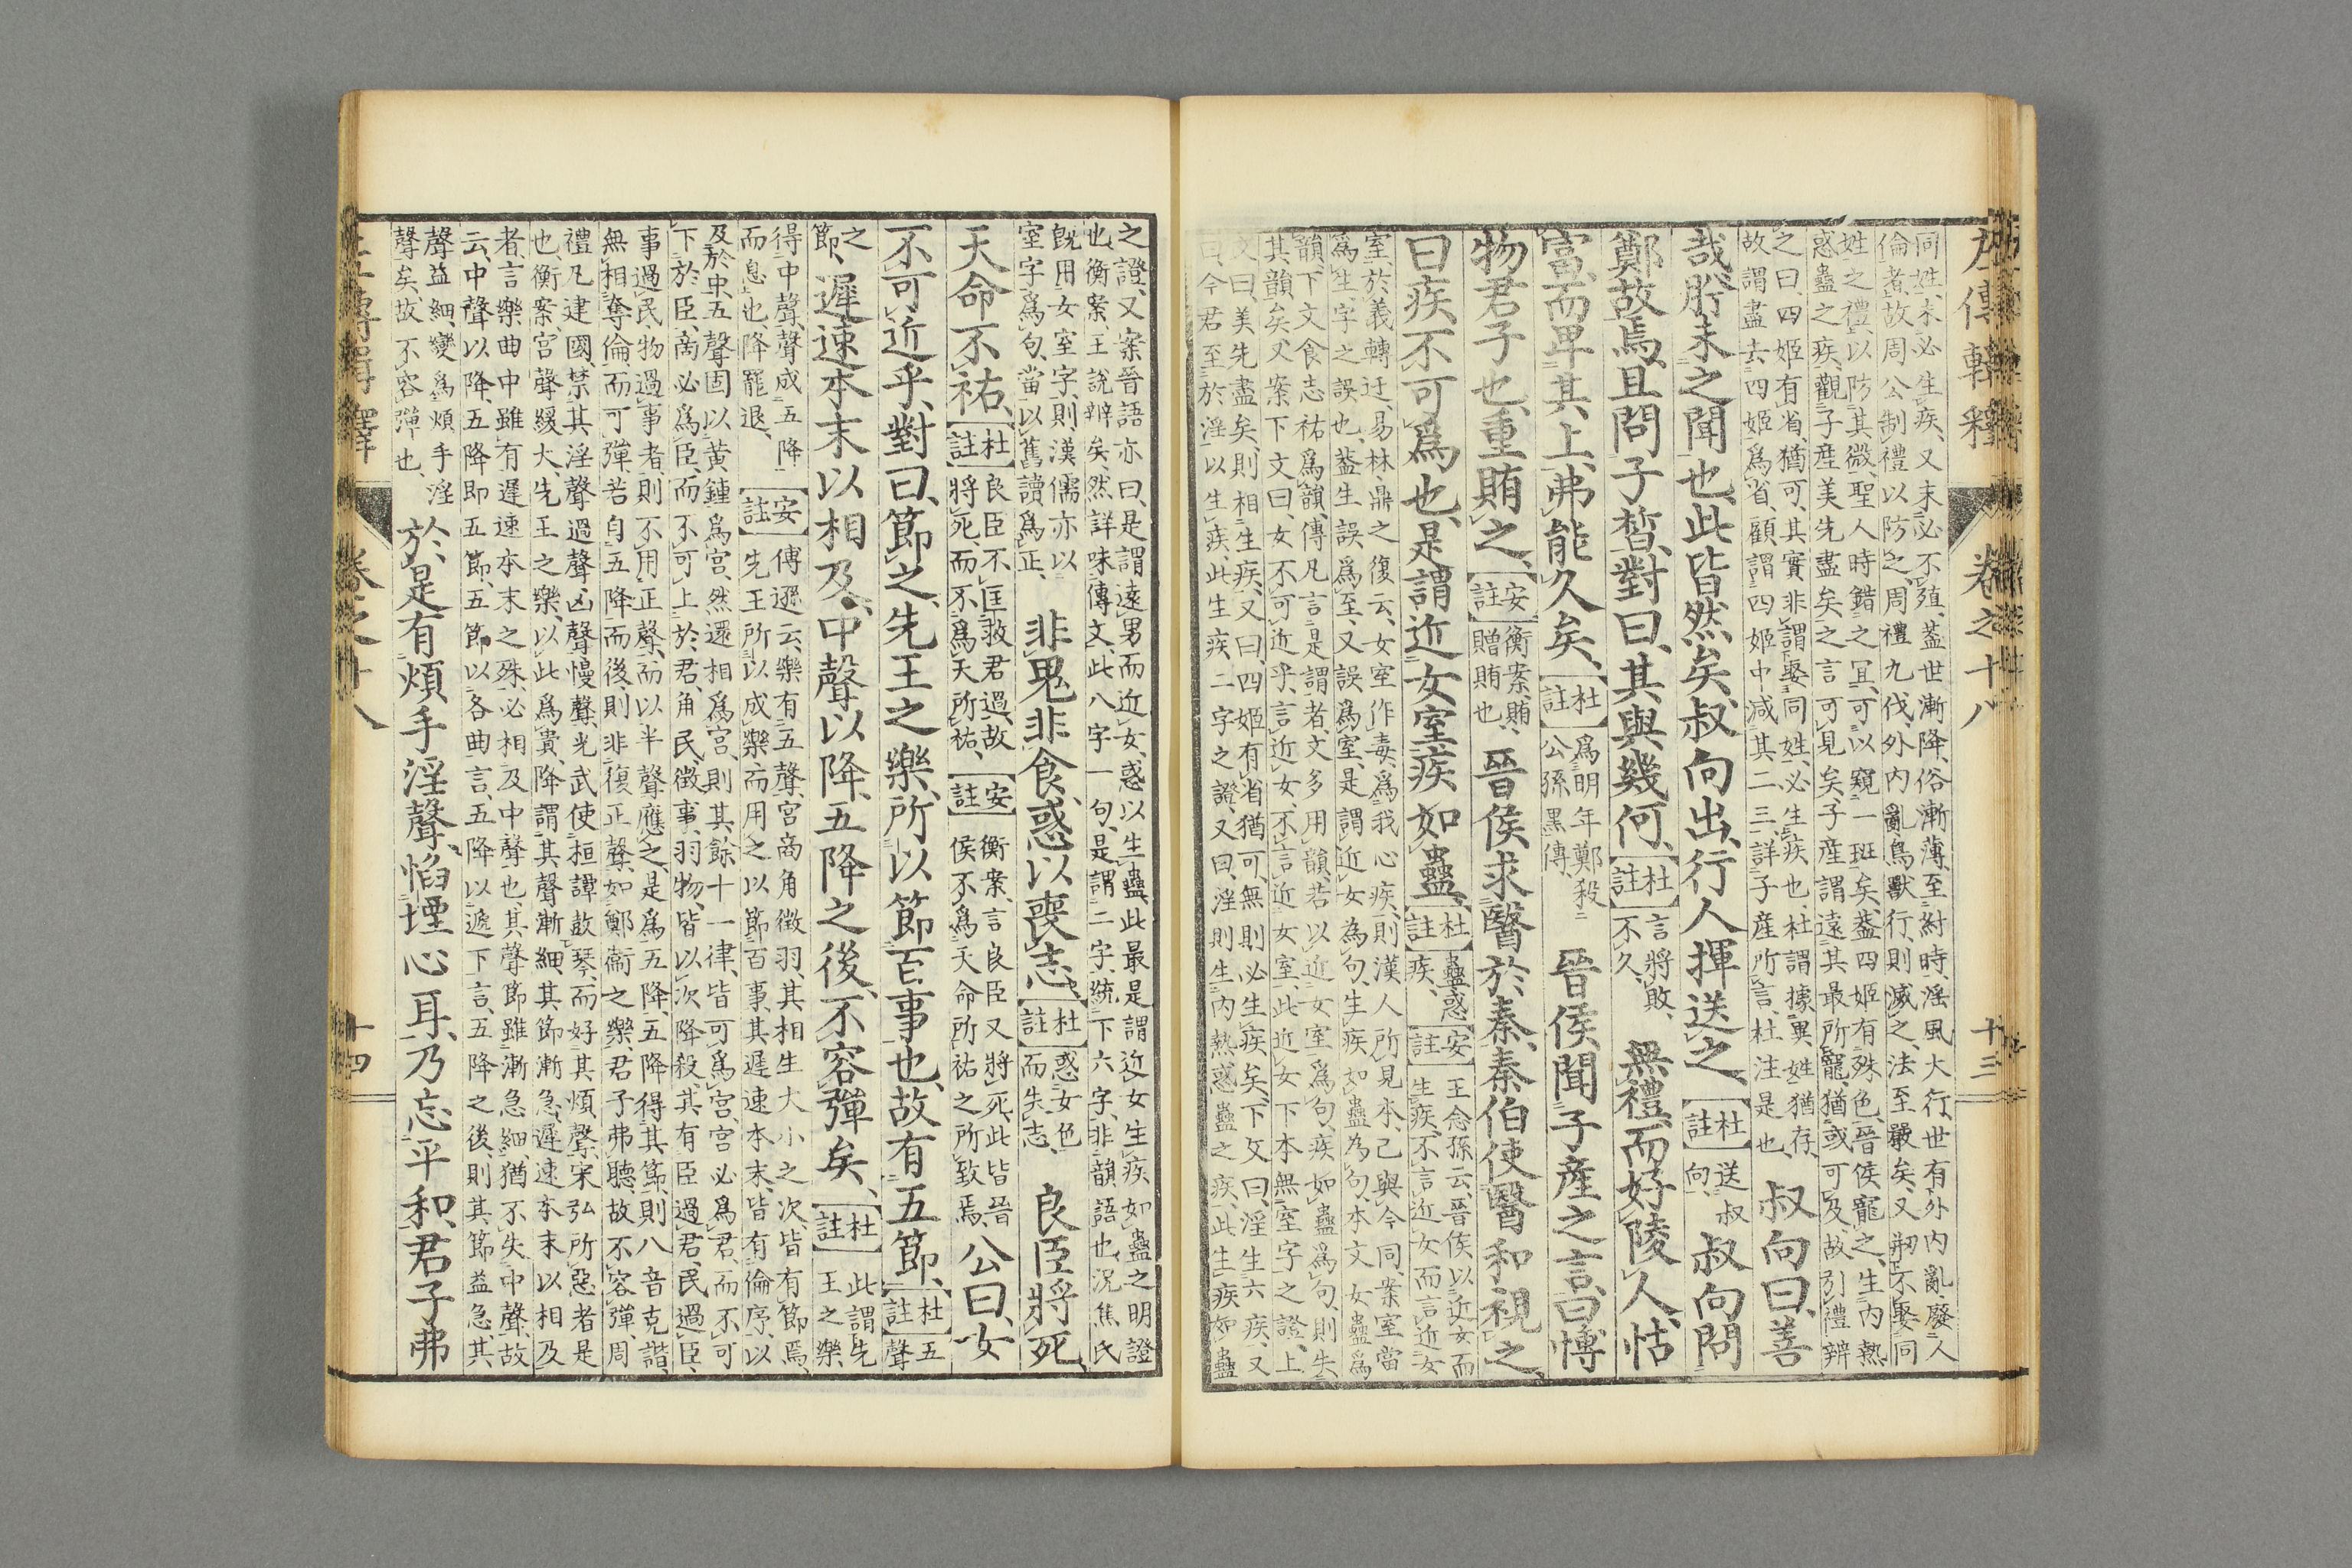 左傳輯釋 卷之十八 十三
同姓、未必生疾、又未必不殖、葢世漸降、俗漸薄、至紂時、淫風大行、世有外内亂、廢人
倫者、故周公制禮以防之、周禮九伐、外内亂鳥獸行、則滅之、法至嚴矣、又剏不娶同
姓之禮、以防其微、聖人時錯之冝、可以窺一班矣、葢四姬有殊色、晉侯寵之、生内熱
惑蠱之疾、觀子産美先盡矣之言、可見矣、子産謂遠其最所寵、猶或可及、故引禮辨
之曰、四姬有省、猶可、其實非謂娶同姓、必生疾也、杜謂據異姓猶存、
故謂盡去四姬爲省、顧謂四姬中減其二三、詳子産所言、杜注是也、
叔向曰、善
哉、肸未之聞也、此皆然矣、叔向出、行人揮送之、杜註 送叔向、 叔向問
鄭故焉、且問子晳、對曰、其與幾何、杜註 言將敗、不久、 無禮而好陵人、怙
富而卑其上、弗能久矣、杜註 爲明年鄭殺公孫黑傳、 晉侯聞子産之言、曰、博
物君子也、重賄之、安註 衡案、賄、贈賄也、 晉侯求醫於秦、秦伯使醫和視之、
曰、疾不可爲也、是謂近女室疾如蠱、杜註 蠱惑疾、 安註 王念孫云、晉侯以近女而生疾、不言近女而言近女
室、於義轉迂、易林鼎之復云、女室作毒、爲我心疾、則漢人所見本、已與今同、案室當
爲生字之誤也、葢生誤爲至、又誤爲室、是謂近女為句、生疾如蠱為句、本文女蠱爲
韻、下文食志祐爲韻、傳凡言是謂者、文多用韻、若以近女室爲句、疾如蠱爲句、則失
其韻矣、又案下文曰、女不可近乎、言近女、不言近女室、此近女下本無室字之證、上
文曰、美先盡矣、則相生疾、又曰、四姬有省猶可、無則必生疾矣、下文曰、淫生六疾、又
曰、今君至於淫以生疾、此生疾二字之證、又曰、淫則生内熱惑蠱之疾、此生疾如蠱
之證、又案晉語亦曰、是謂遠男而近女、惑以生蠱、此最是謂近女生疾如蠱之明證
也、衡案、王説辨矣、然詳味傳文、此八字一句、是謂二字、統下六字、非韻語也、況焦氏
既用女室字、則漢儒亦以
室字爲句、當以舊讀爲正、
非鬼非食、惑以喪志、杜註 惑女色而失志、 良臣將死、
天命不祐、杜註 良臣不匡救君過、故將死、而不爲天所祐、 安註 衡案、言良臣又將死、此皆晉侯不爲天命所祐之所致焉、 公曰、女
不可近乎、對曰、節之、先王之樂、所以節百事也、故有五節、杜註 五聲
之節、
遲速本末以相及、中聲以降、五降之後、不容彈矣、杜註 此謂先王之樂
得中聲、聲成五降
而息也、降罷退、
安註 傳遜云、樂有五聲、宮商角徵羽、其相生大小之次、皆有節焉、
先王所以成樂、而用之以節百事、其遲速本末、皆有倫序、以
及於中、五聲固以黄鍾爲宮、然還相爲宮、則其餘十一律、皆可爲宮、宮必爲君、而不可
下於臣、商必爲臣、而不可上於君、角民、徵事、羽物、皆以次降殺、其有臣過君、民過臣、
事過民、物過事者、則不用正聲、而以半聲應之、是爲五降、五降得其節、則八音克諧、
無相奪倫、而可彈、若自五降而後、則非復正聲、如鄭衞之樂、君子弗聽、故不容彈、周
禮凡建國、禁其淫聲過聲、凶聲慢聲、光武使桓譚鼓琴、而好其煩聲、宋弘所惡者是
也、衡案、宮聲緩大、先王之樂、以此爲貴、降謂其聲漸細、其節漸急、遲速本末以相及
者、言樂曲中雖有遲速本末之殊、必相及中聲也、其聲節雖漸急細、猶不失中聲、故
云、中聲以降、五降即五節、五節以各曲言、五降以遞下言、五降之後、則其節益急、其
聲益細、變爲煩手淫
聲矣、故不容彈也、
於是有煩手淫聲、慆堙心耳、乃忘平和、君子弗
卷之十八 十四